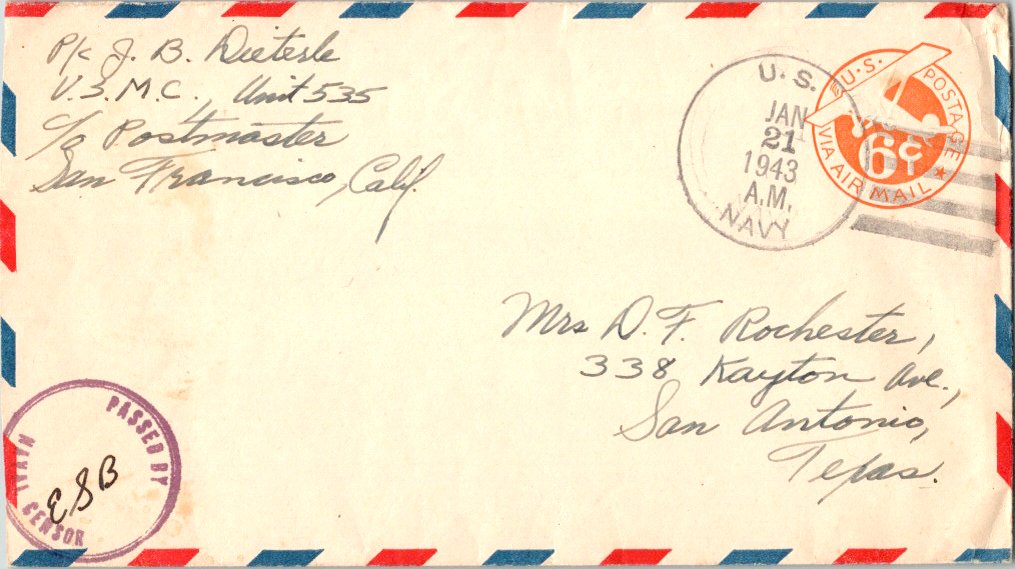 Pfc J. B. Dieterle
U.S.M.C. Unit 535
c/o Postmaster
San Francisco, Calif.
U.S.
JAN
21
1943
A.M.
NAVY
U.S. POSTAGE
6¢
VIA AIR MAIL
Mrs D. F. Rochester,
338 Kayton Ave.,
San Antonio,
Texas.
PASSED BY
NAVAL CENSOR
ESB